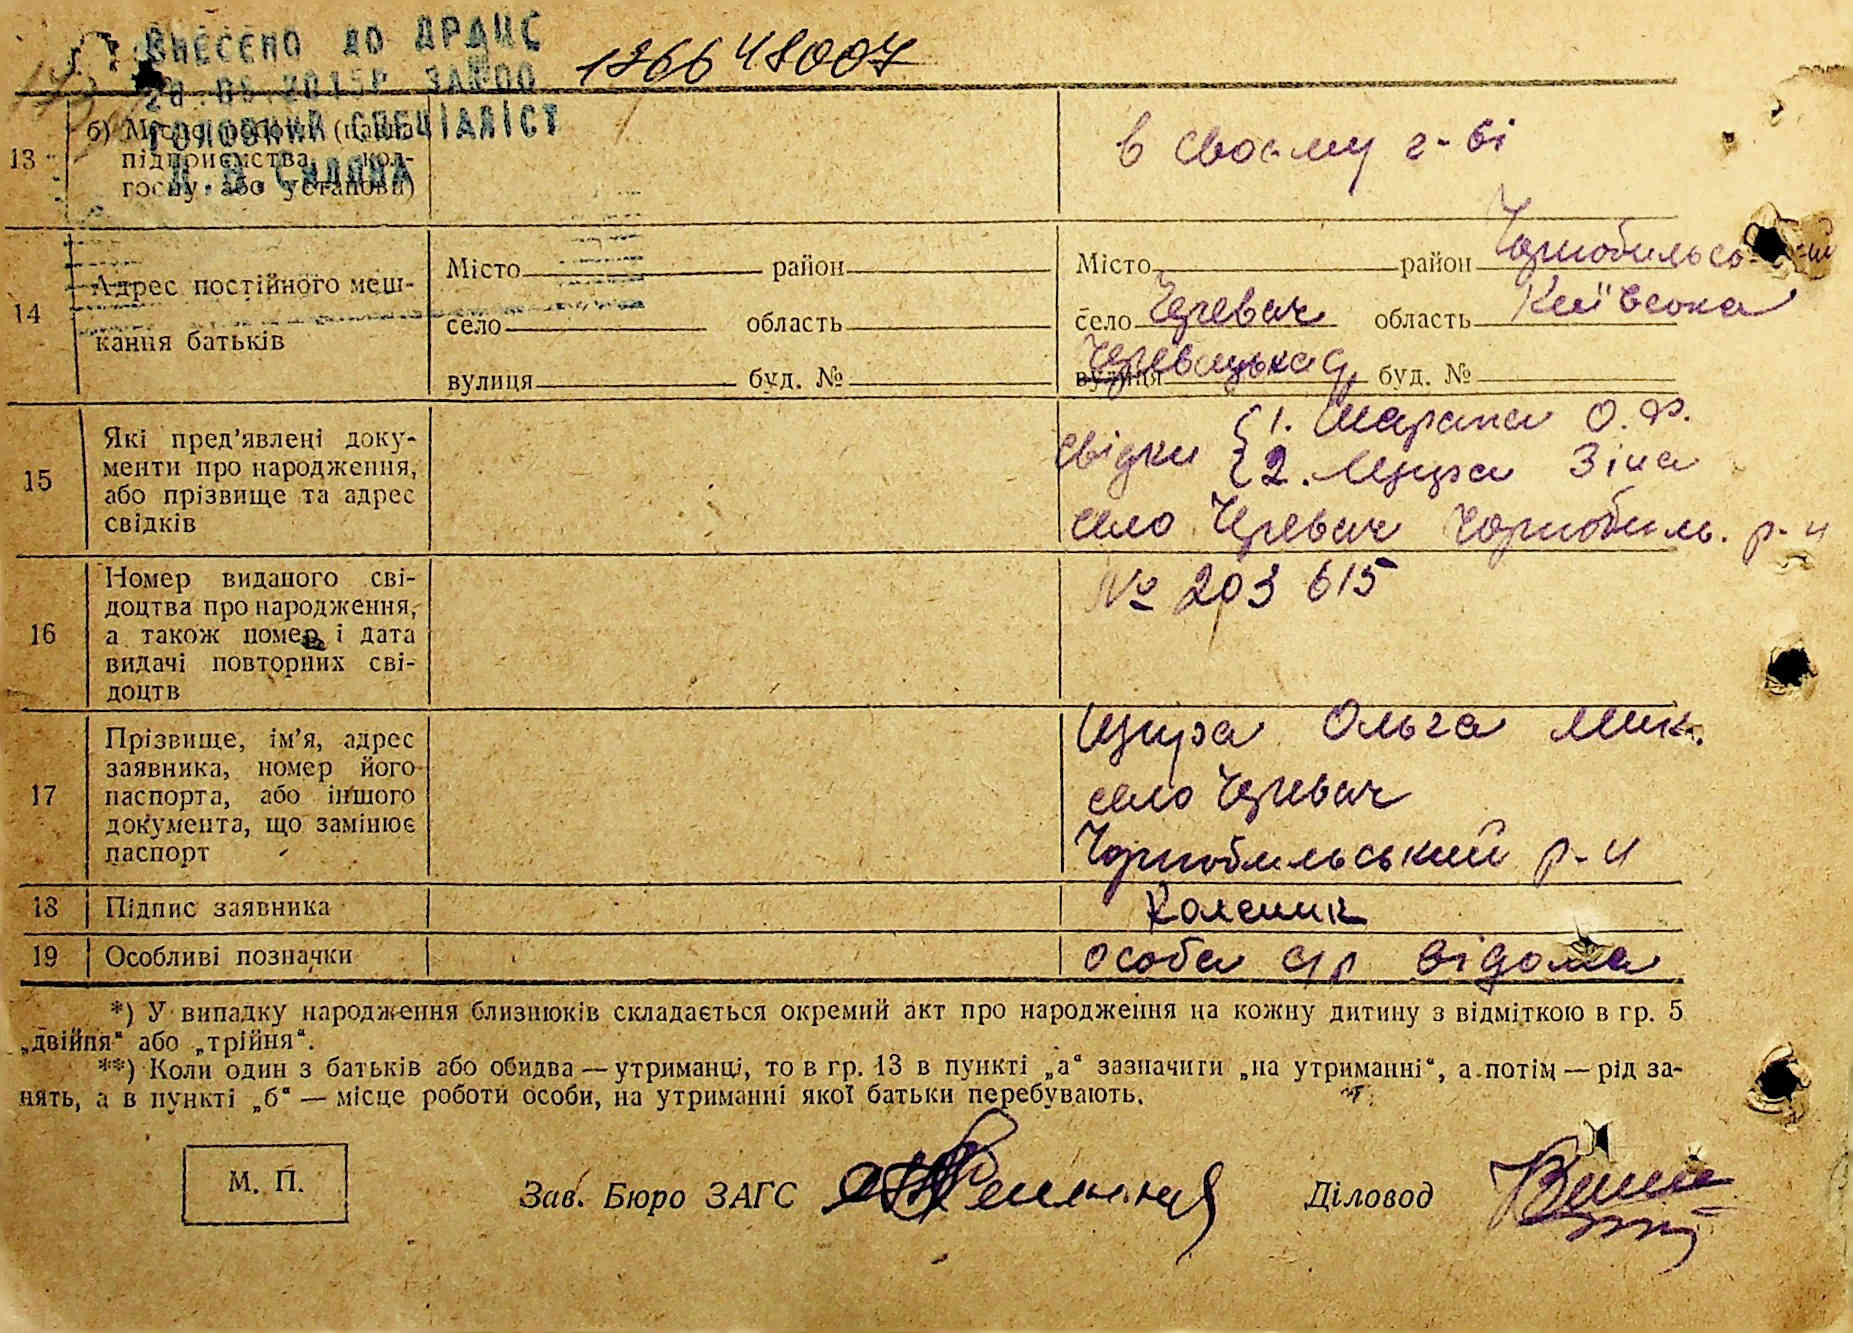 ВНЕСЕНО ДО ДРАЦС
20.08.2015р ЗА №00
ГОЛОВНИЙ СПЕЦІАЛІСТ
126648007
13
б) Місце роботи (назва
підприємства, кол-
госпу, або установи)
в своєму г-ві
14
Адрес постійного меш-
кання батьків
Місто район
село область
вулиця буд. №
Місто район Чорнобильський
село Черевач область Київська
вулиця буд. №
15
Які пред'явлені доку-
менти про народження,
або прізвище та адрес
свідків
свідки 1. О. Ф.
2. Зіна
село Черевач Чорнобиль. р-н
16
Номер виданого сві-
доцтва про народження,
а також номер і дата
видачі повторних сві-
доцтв
№ 203615
17
Прізвище, ім'я, адрес
заявника, номер його
паспорта, або іншого
документа, що замінює
паспорт
Ольга Мик.
село Черевач
Чорнобильський р-н
18
Підпис заявника
19
Особливі позначки
особа с/р відома
*) У випадку народження близнюків складається окремий акт про народження на кожну дитину з відміткою в гр. 5
„двійня“ або „трійня“.
**) Коли один з батьків або обидва — утриманці, то в гр. 13 в пункті „а“ зазначити „на утриманні“, а потім — рід за-
нять, а в пункті „б“ — місце роботи особи, на утриманні якої батьки перебувають.
М. П.
Зав. Бюро ЗАГС
Діловод